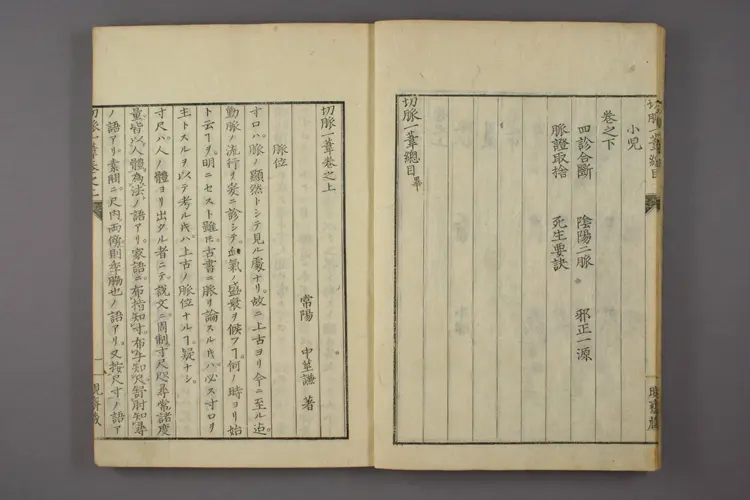 小児
卷之下
四診合斷　陰陽二脈　邪正一源
脈證取捨　死生要訣
切脈一葦總目畢
切脈一葦總目
切脈一葦卷之上
常陽　中莖謙　著
脈位
寸口ハ。脈ノ顯然トシテ見ル處ナリ。故ニ上古ヨリ今ニ至ル迄。
動脈ノ流行ヲ爰ニ診シテ。血氣ノ盛衰ヲ候フヿ。何ノ時ヨリ始
ト云フヲ。明ニセスト雖𪜈。古書ニ脈ヲ論スル𪜈ハ必ス寸口ヲ
主トスルヲ以テ考ル𪜈ハ。上古ノ脈位ナルヿ疑ナシ。
寸尺ハ。人ノ體ヨリ出タル者ニテ。説文ニ。周制。寸尺咫尋常諸度
量。皆以人體爲法。ノ語アリ。家語ニ。布指知寸。布手知尺。舒肘知尋
ノ語アリ。素問ニ。尺内兩傍則季脇也ノ語アリ。又按尺寸ノ語ア
切脈一葦卷之上